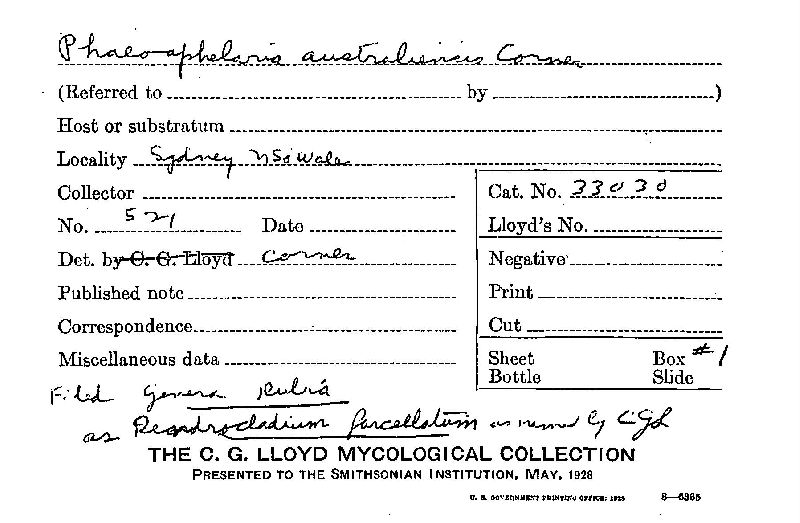 Phaeoaphelaria australiensis Corner
(Referred to by )
Host or substratum
Locality Sydney N So Wales
Collector
Cat. No. 33030
No. 521 Date
Lloyd's No.
Det. by C. G. Lloyd Corner
Negative
Published note
Print
Correspondence
Cut
Miscellaneous data
Sheet Box #1
Bottle Slide
Filed Genera
as furcellatum as named by CGL
THE C. G. LLOYD MYCOLOGICAL COLLECTION
PRESENTED TO THE SMITHSONIAN INSTITUTION, MAY, 1928
U. S. GOVERNMENT PRINTING OFFICE: 1928 8—6365